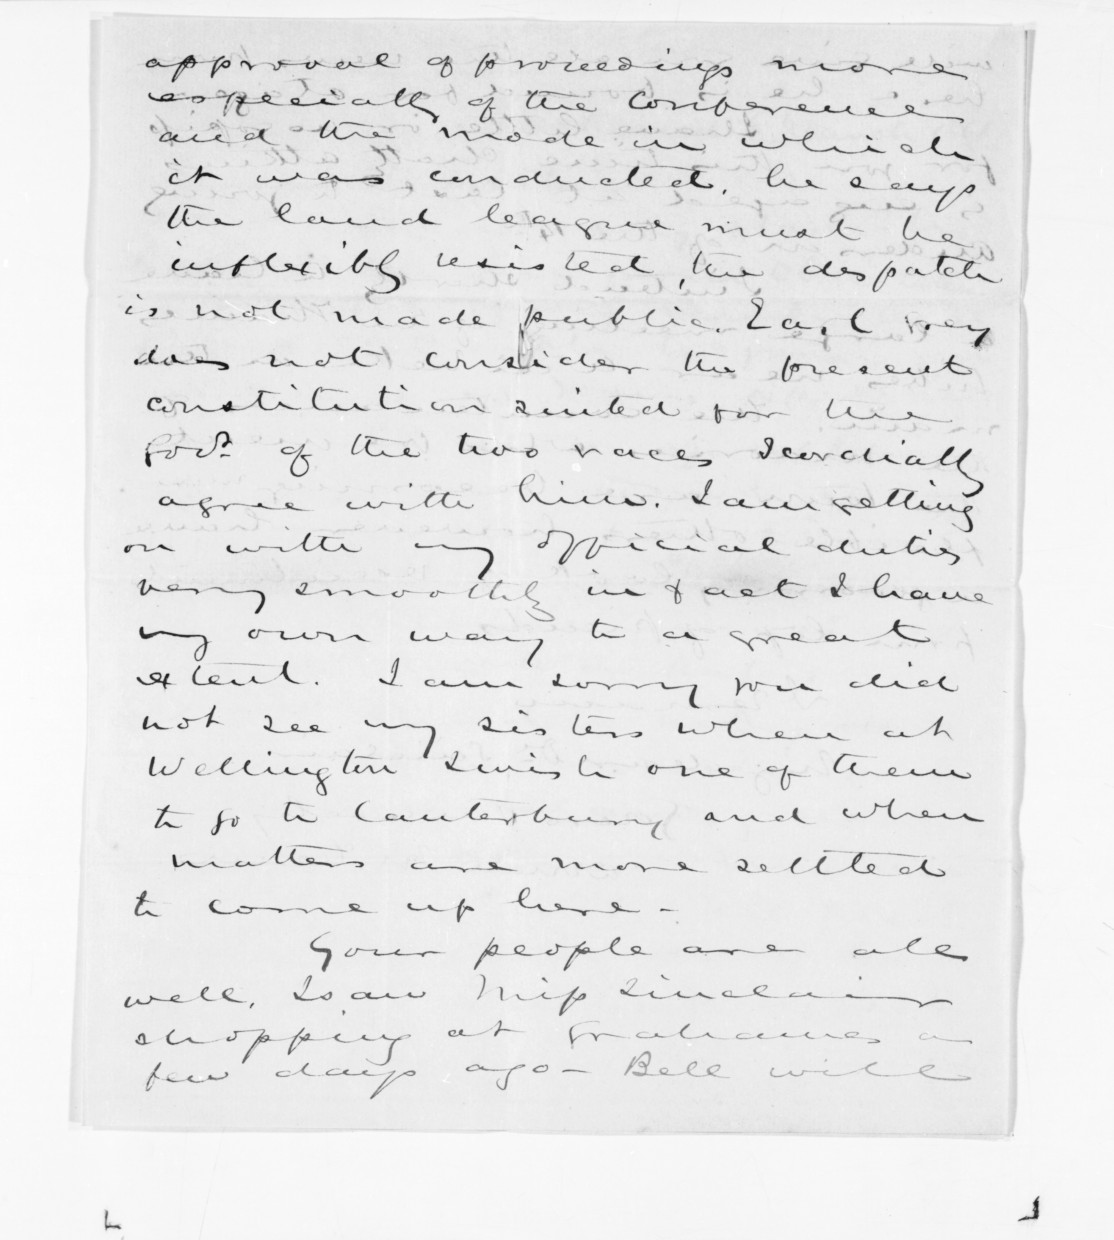 approval of proceedings more
especially of the conference
and the mode in which
it was conducted, he says
the land league must be
inflexibly resisted, the despatch
is not made public. Earl Grey
does not consider the present
constitution suited for the
Govt. of the two races I cordially
agree with him. I am getting
on with my official duties
very smoothly in fact I have
my own way to a great
extent. I am sorry you did
not see my sisters when at
Wellington I wish one of them
to go to Canterbury and when
matters are more settled
to come up here -
Your people are all
well, I saw Miss Sinclair
shopping at Grahames a
few days ago - Bell will